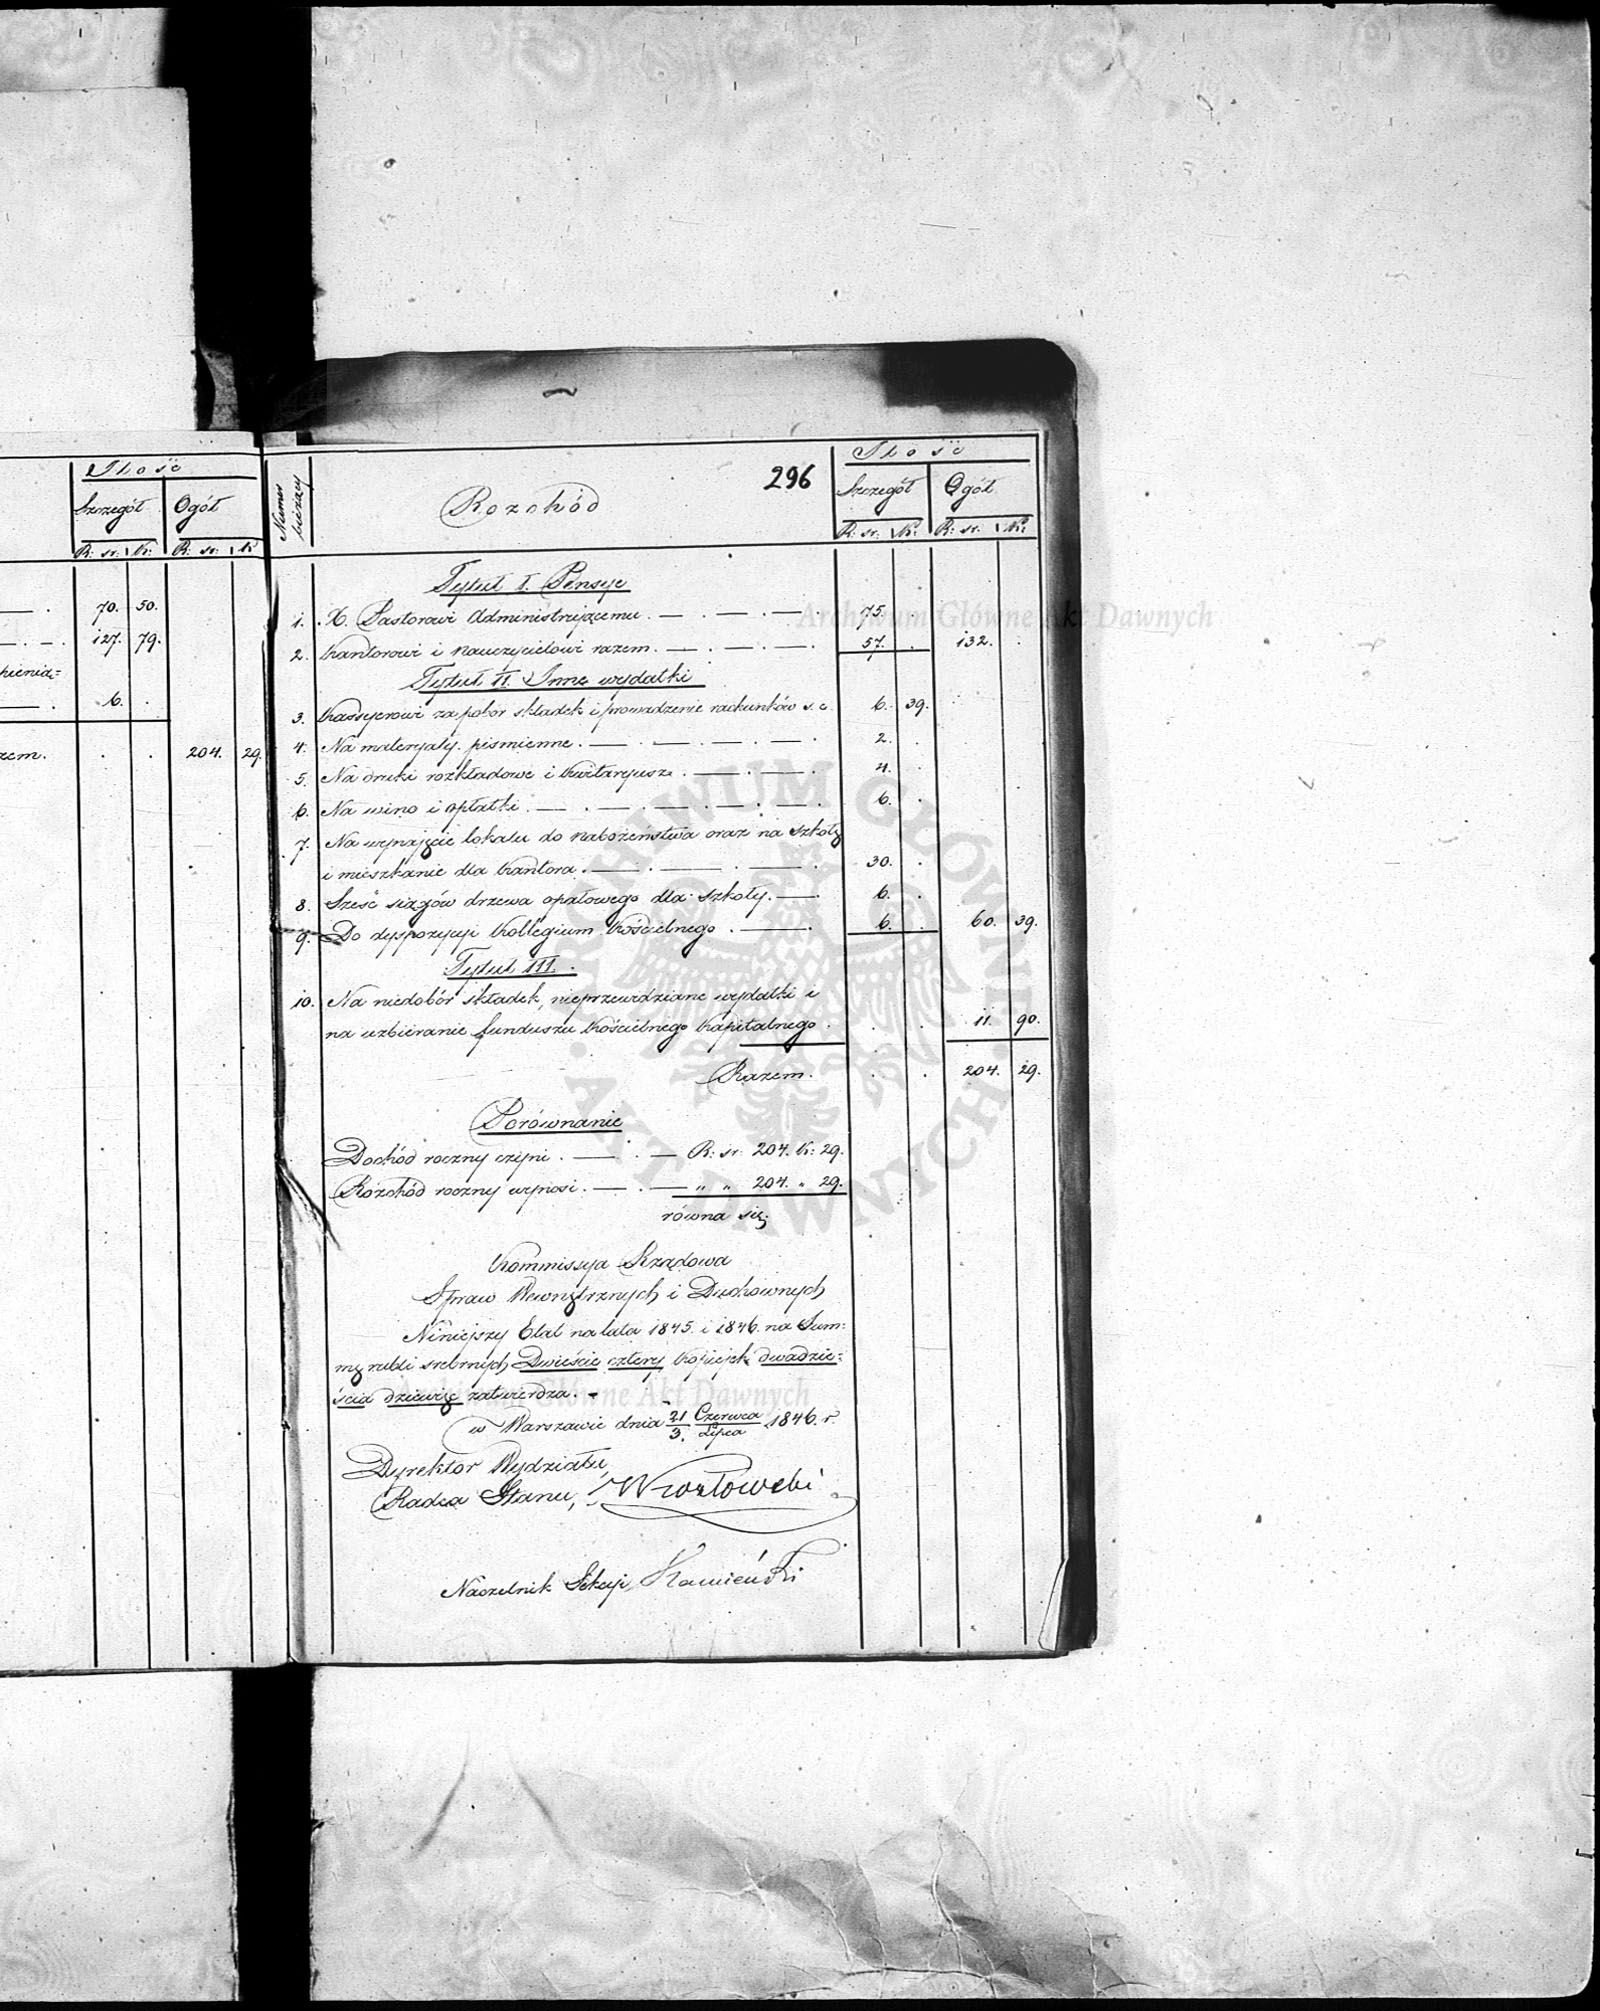 Ilość
Szczegół Ogół
R: sr: K: R: sr: K
70. 50.
127. 79.
pienią=
6. .
zem. . . 204. 29.
296
Numer bieżący
Rozchód
Ilość
Szczegół Ogół
R: sr: K: R: sr: K:
Tytuł I. Pensye
1. X. Pastorowi Administrującemu. — . — . — . 75. .
2. Kantorowi i Nauczycielowi razem. — . — . — . 57. . 132. .
Tytuł II. Inne wydatki
3. Kassyerowi za pobór składek i prowadzenie rachunków s. c. 6. 39.
4. Na materyały piśmienne. — . — . — . — . 2. .
5. Na druki rozkładowe i kwitaryusze. — . — . 4. .
6. Na wino i opłatki. — . — . — . — . — . 6. .
7. Na wynajęcie lokalu do nabożeństwa oraz na szkołę
i mieszkanie dla kantora. — . — . — . 30. .
8. Sześć sążów drzewa opałowego dla szkoły. — . 6. .
9. Do dyspozycyi Kollegium Kościelnego. — . 6. . 60. 39.
Tytuł III.
10. Na niedobór składek, nieprzewidziane wydatki i
na uzbieranie funduszu Kościelnego Kapitalnego. . . 11. 90.
Razem. . . 204. 29.
Porównanie
Dochód roczny czyni. — . — R: sr: 204. K: 29.
Rozchód roczny wynosi. — . — „ „ 204. „ 29.
równa się.
Kommissya Rządowa
Spraw Wewnętrznych i Duchownych
Niniejszy Etat na lata 1845. i 1846. na Sum=
mę rubli srebrnych Dwieście cztery kopiejek dwadzie=
ścia dziewięć zatwierdza. -
w Warszawie dnia 21/3. Czerwca/Lipca 1846. r.
Dyrektor Wydziału,
Radca Stanu,
Naczelnik Sekcyi, Kamieński
Archiwum Główne Akt Dawnych
Archiwum Główne Akt Dawnych
ARCHIWUM GŁÓWNE AKT DAWNYCH